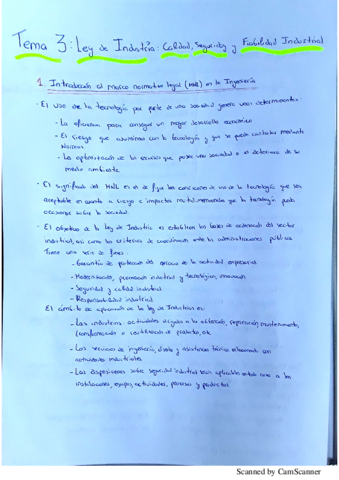 Tema 3: Ley de Industria: Calidad, Seguridad y Fiabilidad Industrial
1. Introducción al marco normativo legal (MNL) en la Ingeniería
· El uso de la tecnología por parte de una sociedad genera unos determinantes:
- La eficiencia para conseguir un mayor desarrollo económico
- El riesgo que asumimos con la tecnología y que se puede controlar mediante
Normas
- La optimización de los recursos que posee una sociedad o el deterioro de su
medio ambiente
· El significado del MNL es el de fijar las condiciones de uso de la tecnología que sea
aceptable en cuanto a riesgo e impactos medioambientales que la tecnología pueda
ocasionar sobre la sociedad.
· El objetivo de la Ley de Industria es establecer las bases de ordenación del sector
industrial, así como los criterios de coordinación entre las administraciones públicas.
Tiene una serie de fines:
- Garantía de protección del ejercicio de la actividad empresarial
- Modernización, promoción industrial y tecnológica, innovación
- Seguridad y calidad industrial
- Responsabilidad industrial
El ámbito de aplicación de la ley de Industria es:
- Las industrias: actividades dirigidas a la obtención, reparación, mantenimiento,
transformación o reutilización de productos, etc
- Los servicios de ingeniería, diseño y asistencia técnica relacionada con
actividades industriales
- Las disposiciones sobre seguridad industrial serán aplicables en todo caso a las
instalaciones, equipos, actividades, procesos y productos.
Scanned by CamScanner